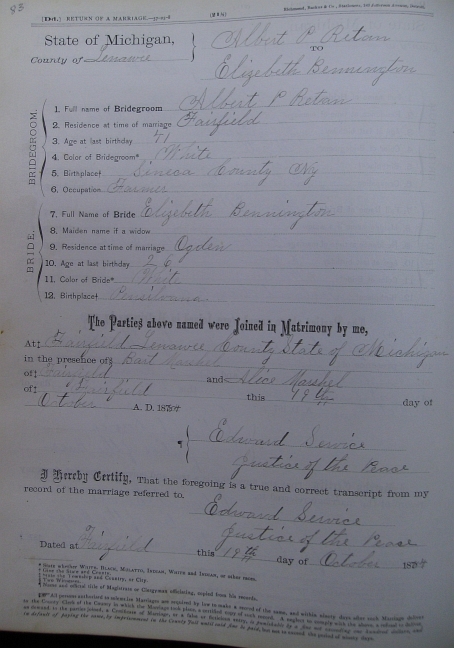 83
[D4.] RETURN OF A MARRIAGE.
State of Michigan, Albert P Retan
TO
County of Lenawee Elizabeth Bennington
BRIDEGROOM.
1. Full name of Bridegroom Albert P Retan
2. Residence at time of marriage Fairfield
3. Age at last birthday 71
4. Color of Bridegroom* White
5. Birthplace† Seneca County Ny
6. Occupation Farmer
BRIDE.
7. Full Name of Bride Elizabeth Bennington
8. Maiden name if a widow
9. Residence at time of marriage Ogden
10. Age at last birthday 26
11. Color of Bride* White
12. Birthplace† Pensilvana
The Parties above named were Joined in Matrimony by me,
At‡ Fairfield Lenawee County State of Michigan
in the presence of§
of‡ Fairfield and Alice Marshel
of‡ Fairfield this 19th day of
October A. D. 187
Edward Service
Justice of the Peace
I Hereby Certify, That the foregoing is a true and correct transcript from my
record of the marriage referred to.
Edward Service
Justice of the Pease
Dated at Fairfield this 19th day of October 1878
* State whether WHITE, BLACK, MULATTO, INDIAN, WHITE and INDIAN, or other races.
† Give the State and County.
‡ State the Township and County, or City.
§ Two Witnesses.
¶ Name and official title of Magistrate or Clergyman officiating, copied from his records.